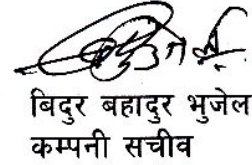 बिदुर बहादुर भुजेल
कम्पनी सचीव